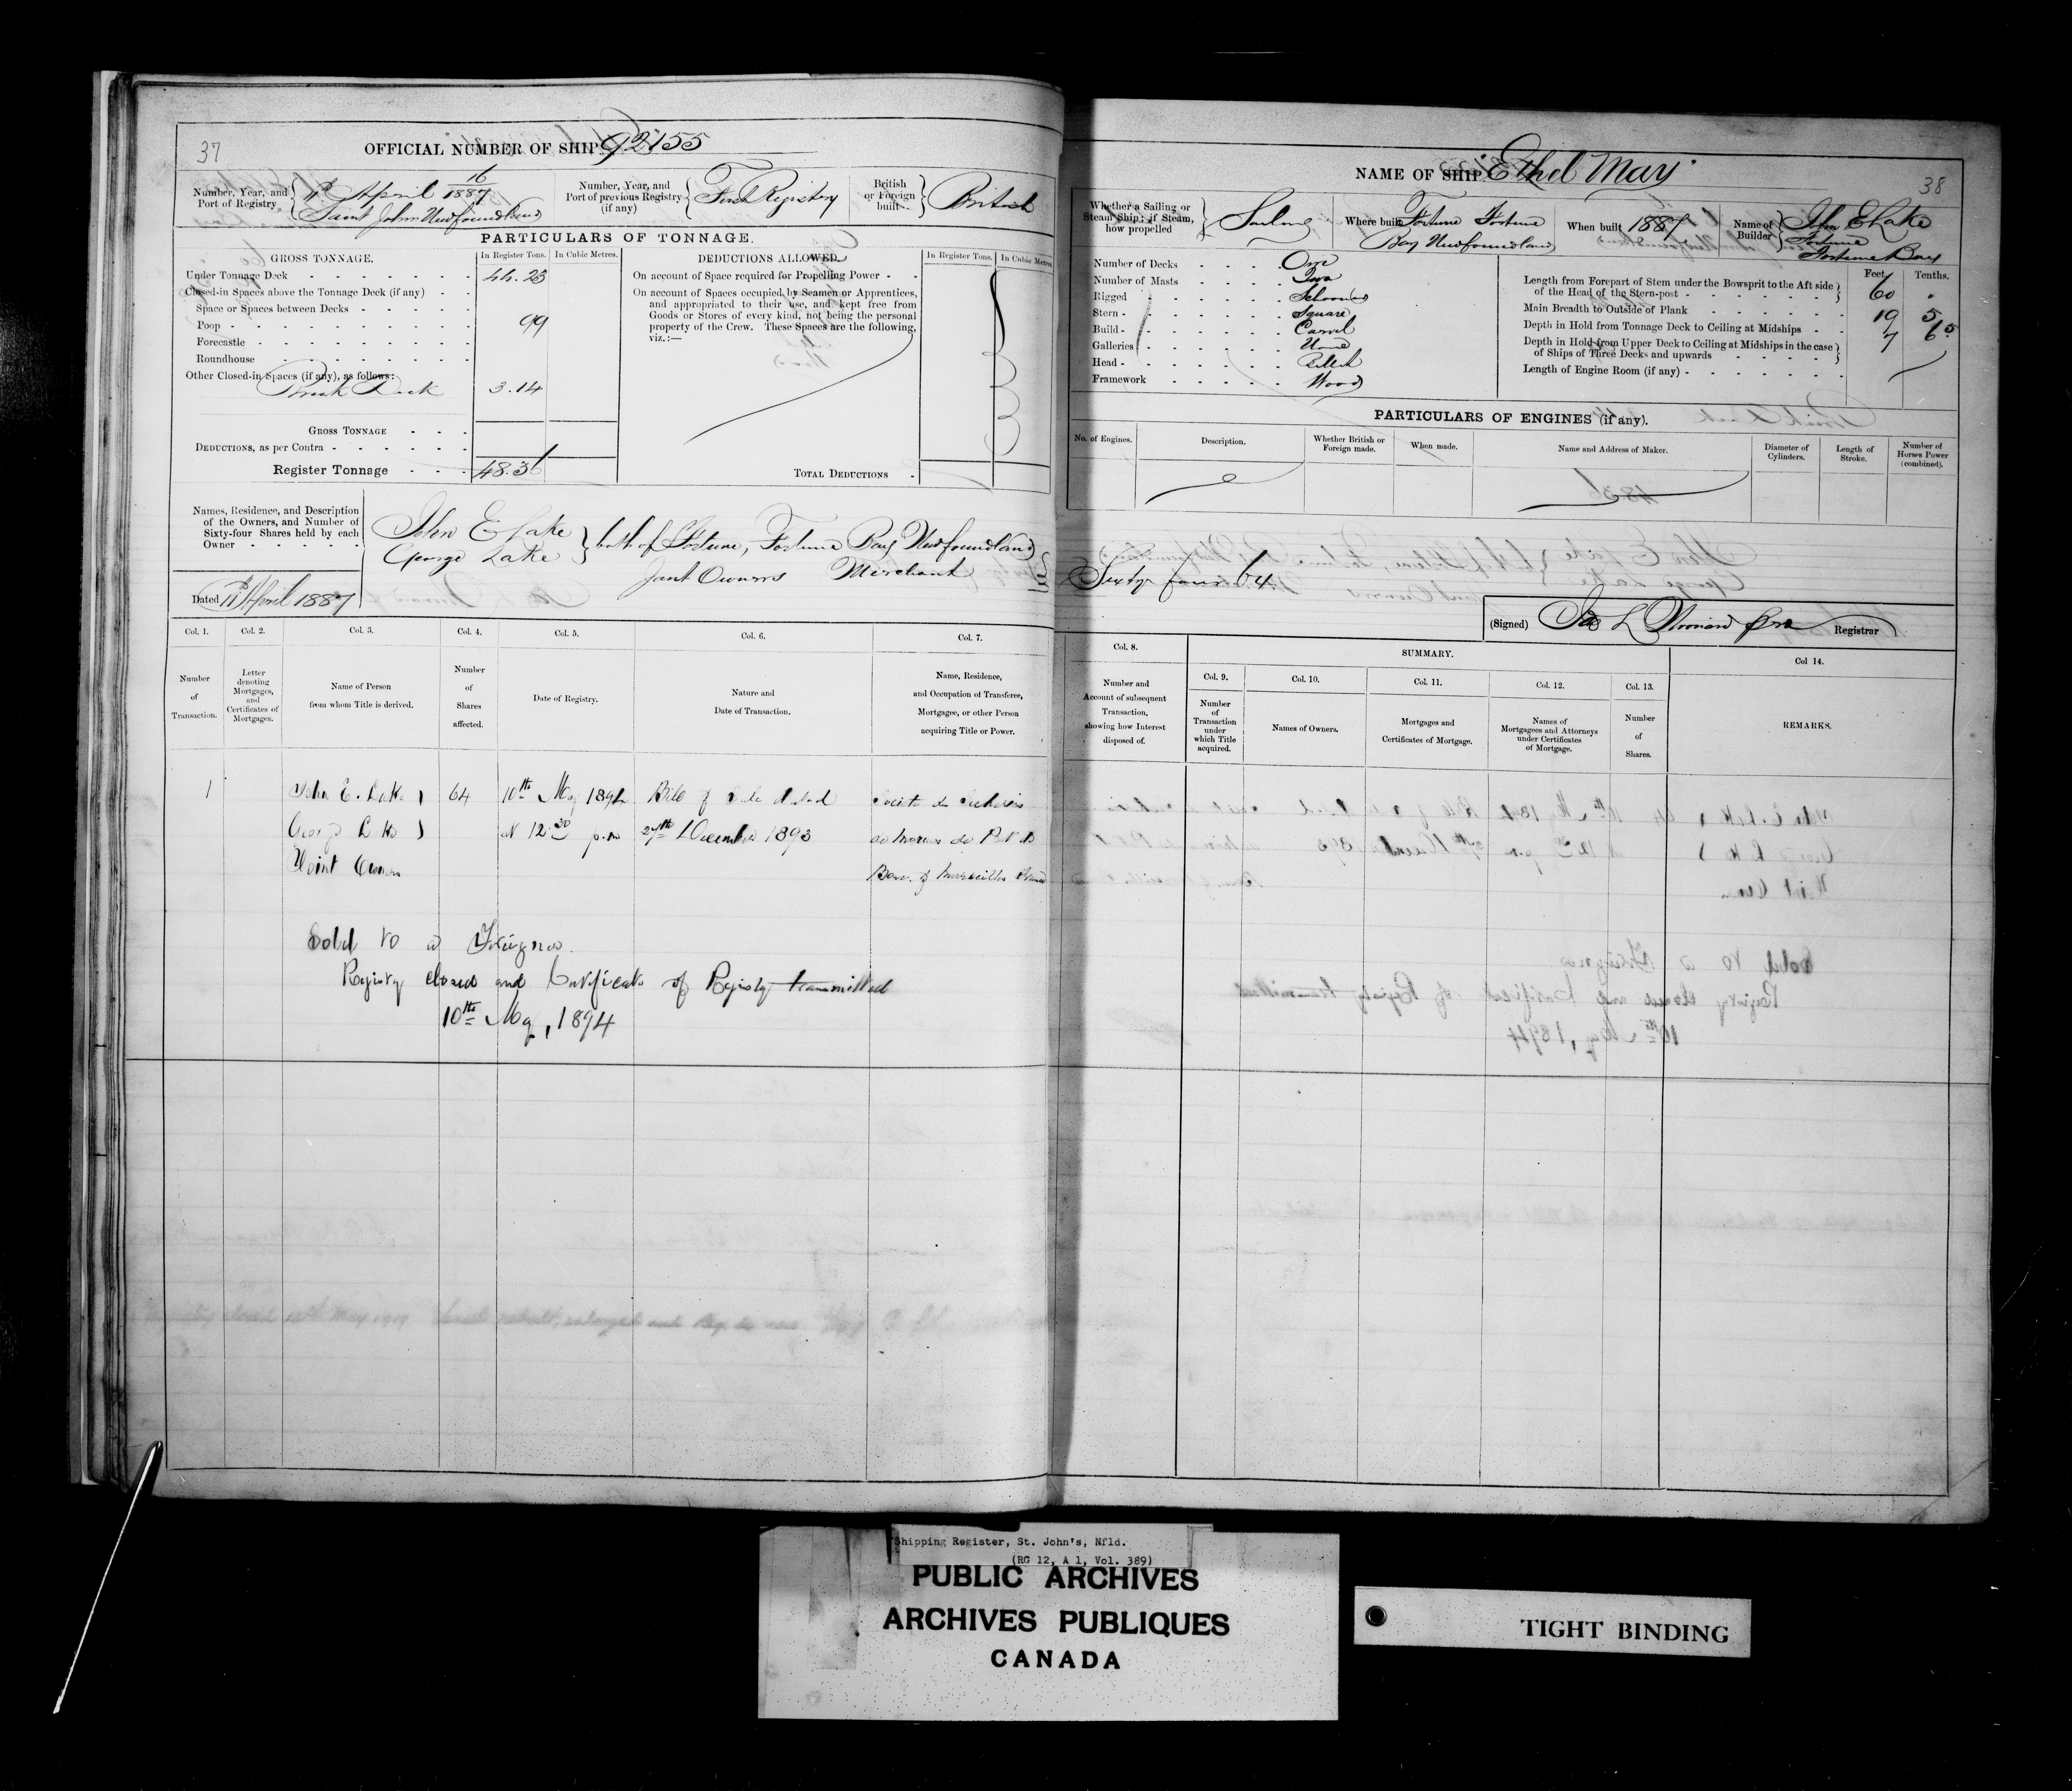 37
OFFICIAL NUMBER OF SHIP 92155
Number, Year, and Port of Registry
16
11th April 1887
Saint John Newfoundland
Number, Year, and Port of previous Registry (if any)
First Registry
British or Foreign built
British
PARTICULARS OF TONNAGE.
GROSS TONNAGE.
In Register Tons.
In Cubic Metres.
DEDUCTIONS ALLOWED.
In Register Tons.
In Cubic Metres
Under Tonnage Deck 44.23
Closed-in Spaces above the Tonnage Deck (if any)
Space or Spaces between Decks
Poop 99
Forecastle
Roundhouse
Other Closed-in Spaces (if any), as follows:
Break Deck 3.14
GROSS TONNAGE
DEDUCTIONS, as per Contra
Register Tonnage 48.36
On account of Space required for Propelling Power
On account of Spaces occupied by Seamen or Apprentices,
and appropriated to their use, and kept free from
Goods or Stores of every kind, not being the personal
property of the Crew. These Spaces are the following,
viz.:—
TOTAL DEDUCTIONS
Names, Residence, and Description
of the Owners, and Number of
Sixty-four Shares held by each
Owner
John E Lake
George Lake
both of Fortune, Fortune Bay Newfoundland
Joint Owners Merchant
Dated 11th April 1887
Col. 1.
Number of Transaction.
Col. 2.
Letter denoting Mortgages, and Certificates of Mortgages.
Col. 3.
Name of Person from whom Title is derived.
Col. 4.
Number of Shares affected.
Col. 5.
Date of Registry.
Col. 6.
Nature and Date of Transaction.
Col. 7.
Name, Residence, and Occupation of Transferee, Mortgagee, or other Person acquiring Title or Power.
1 John E. Lake 64 10th May 1894 Bill of Sale dated
George Lake at 12.30 p.m 27th December 1893
Joint Owners
Sold to a Foreigner.
Registry closed and Certificate of Registry transmitted
10th May, 1894
NAME OF SHIP "Ethel May"
38
Whether a Sailing or Steam Ship; if Steam, how propelled
Sailing
Where built
Fortune Fortune
Bay Newfoundland
When built 1887
Name of Builder
John E Lake
Fortune
Fortune Bay
Number of Decks One
Number of Masts Two
Rigged Schooner
Stern Square
Build Carvel
Galleries None
Head Billet
Framework Wood
Feet Tenths.
Length from Forepart of Stem under the Bowsprit to the Aft side of the Head of the Stern-post 60
Main Breadth to Outside of Plank 19 5
Depth in Hold from Tonnage Deck to Ceiling at Midships 7 65
Depth in Hold from Upper Deck to Ceiling at Midships in the case of Ships of Three Decks and upwards
Length of Engine Room (if any)
PARTICULARS OF ENGINES (if any).
No. of Engines.
Description.
Whether British or Foreign made.
When made.
Name and Address of Maker.
Diameter of Cylinders.
Length of Stroke.
Number of Horses Power (combined).
Sixty four 64
(Signed) Registrar
Col. 8.
Number and Account of subsequent Transaction, showing how Interest disposed of.
SUMMARY.
Col. 9.
Number of Transaction under which Title acquired.
Col. 10.
Names of Owners.
Col. 11.
Mortgages and Certificates of Mortgage.
Col. 12.
Names of Mortgagees and Attorneys under Certificates of Mortgage.
Col. 13.
Number of Shares.
Col 14.
REMARKS.
Shipping Register, St. John's, Nfld.
(RG 12, A 1, Vol. 389)
PUBLIC ARCHIVES
ARCHIVES PUBLIQUES
CANADA
TIGHT BINDING